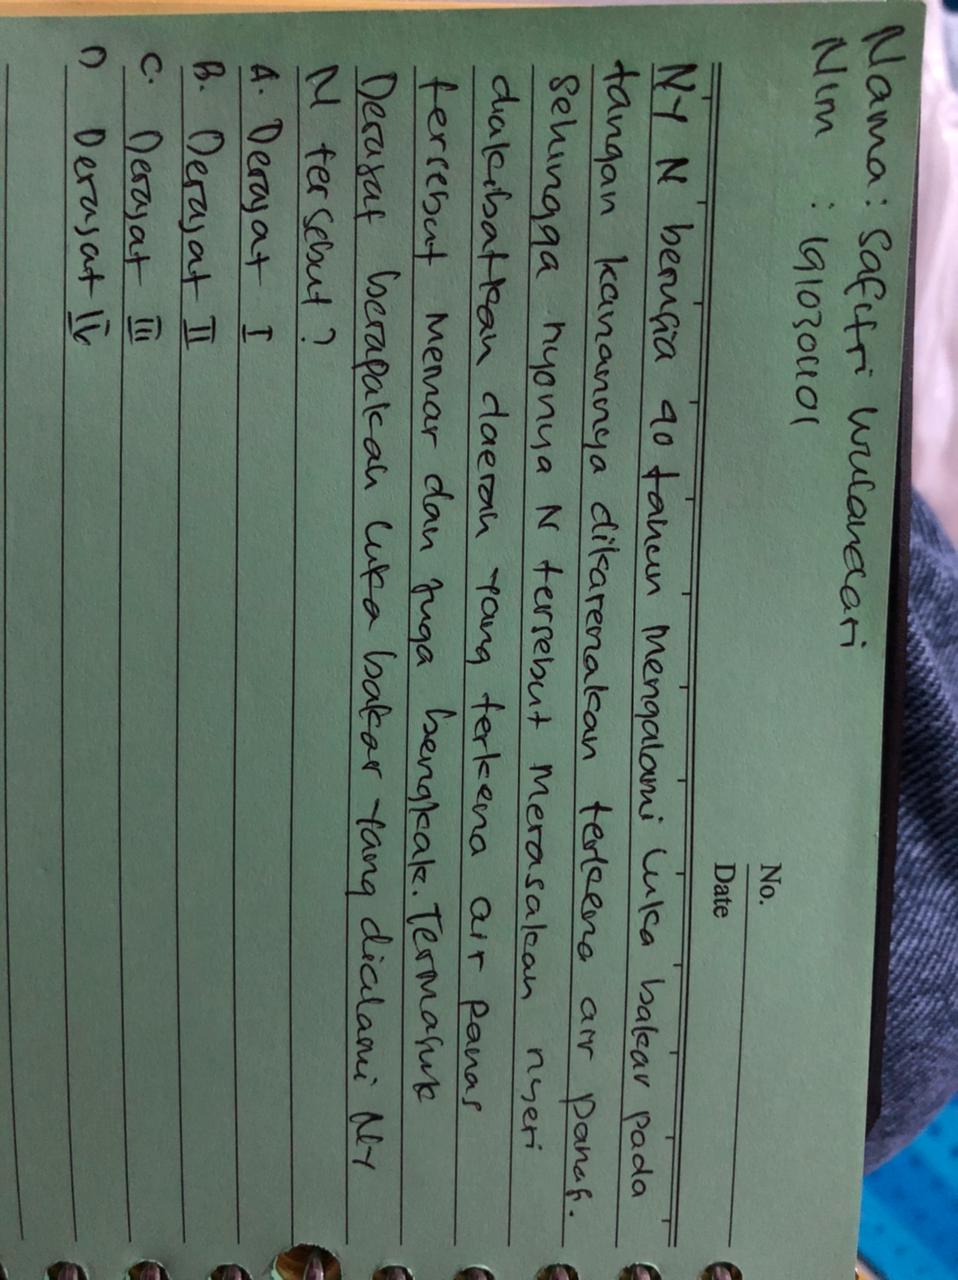 Nama : Safitri Wulandari
Nim : 1910301101
No.
Date
NY N berusia 40 tahun Mengalami luka bakar pada
tangan kanannya dikarenakan terkena air panas.
Sehingga nyonya N tersebut Merasakan nyeri
diakibatkan daerah yang terkena air panas
tersebut Memar dan juga bengkak. Termasuk
Derajat berapakah luka bakar yang dialami NY
N tersebut ?
A. Derajat I
B. Derajat II
C. Derajat III
D Derajat IV